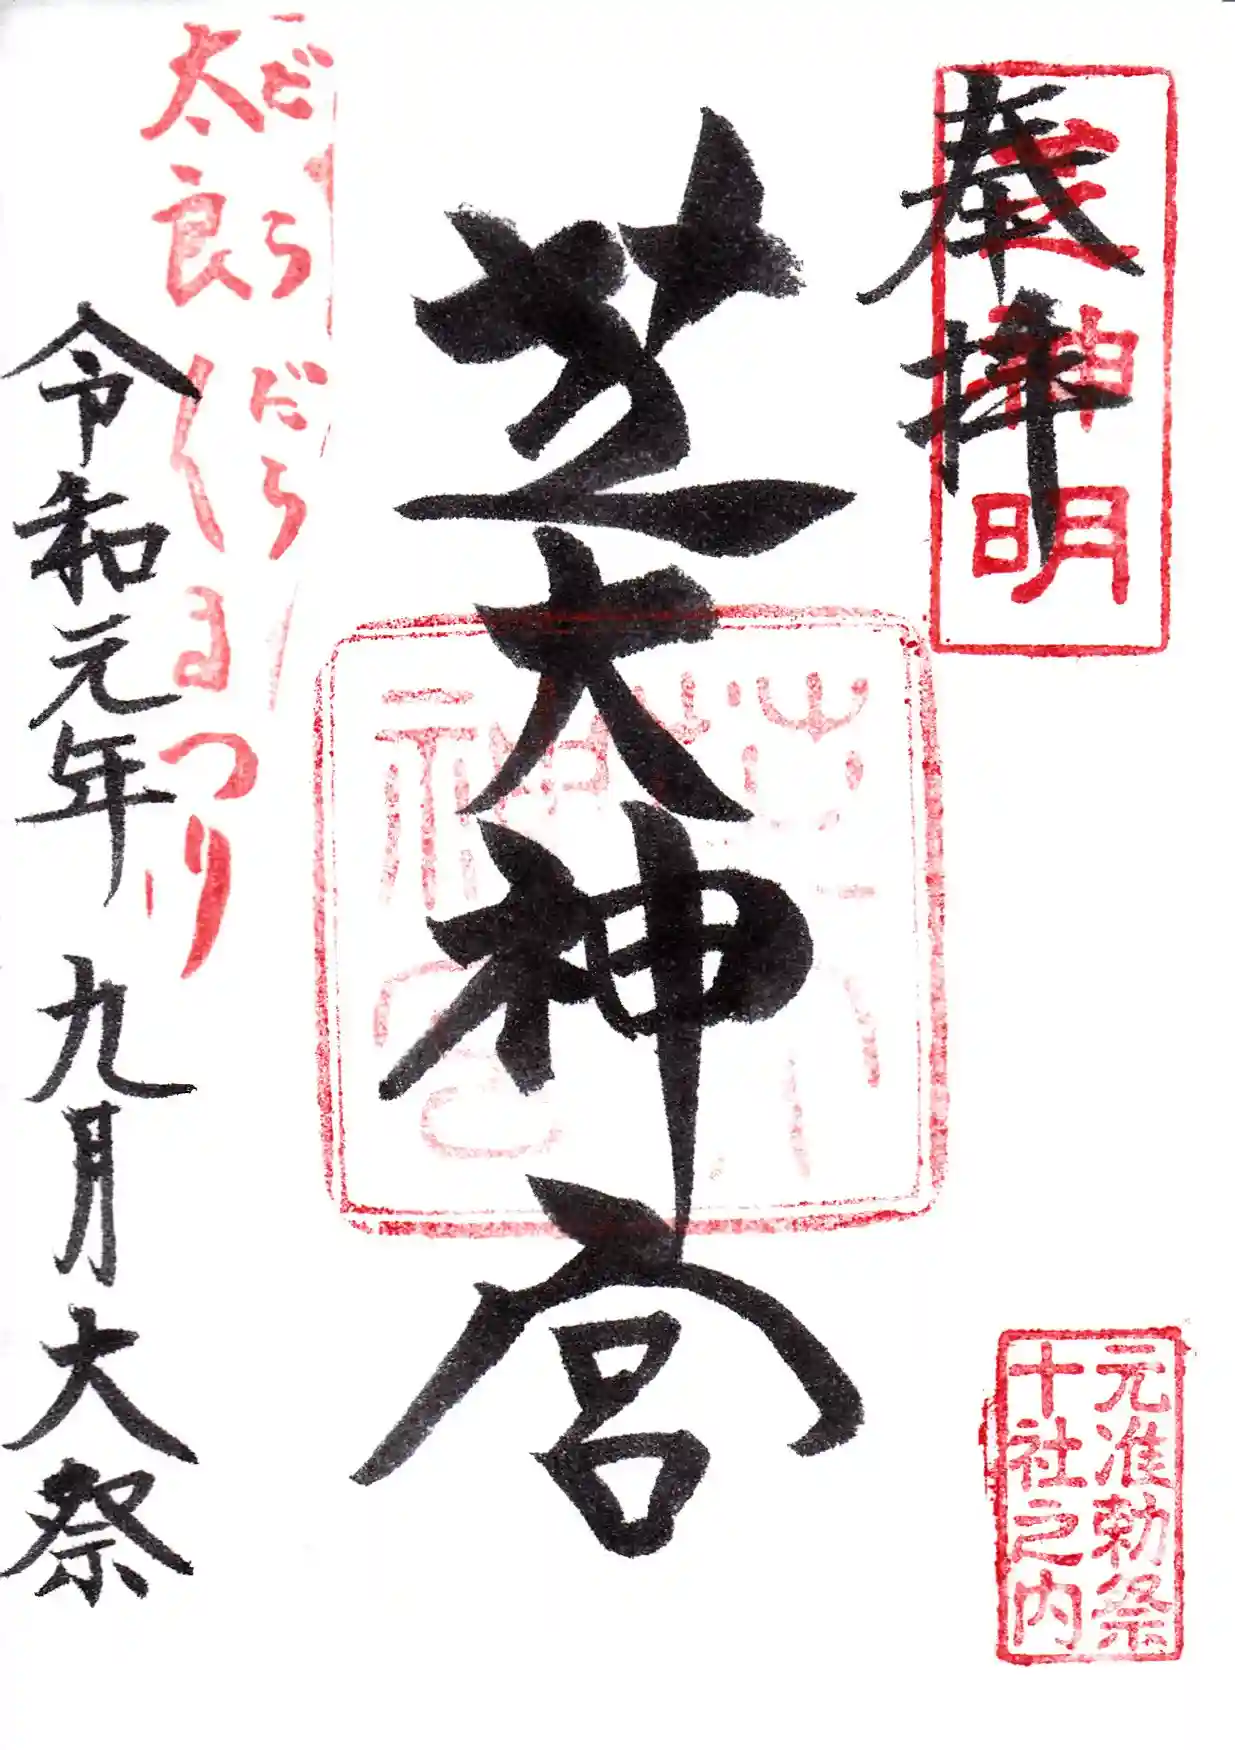 奉拝
芝神明
元准勅祭
十社之内
芝大神宮
芝大
神宮
だらだら
太良〳〵まつり
令和元年 九月 大祭